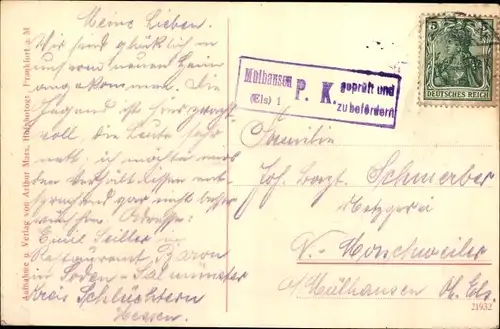 Meine Lieben.
Wir sind glücklich in
unserm neuen Heim
angekommen. Die
Gegend ist hier pracht-
voll die Leute sehr
nett, ich möchte mirs
den Verhältnissen ent-
sprechend gar nicht besser
wünschen. Adresse:
Emil Seiller
Restaurant Baron
in Soden-Salmünster
Kreis Schlüchtern
Hessen.
Aufnahme u. Verlag von Arthur Marx, Hofphotogr., Frankfurt a. M
Mülhausen
(Els) 1
P. K.
geprüft und
zu befördern
5 5
DEUTSCHES REICH
Familie
Schmerber
Metzgerei
N.-Morschweiler
b/Mülhausen Ob. Els.
21932